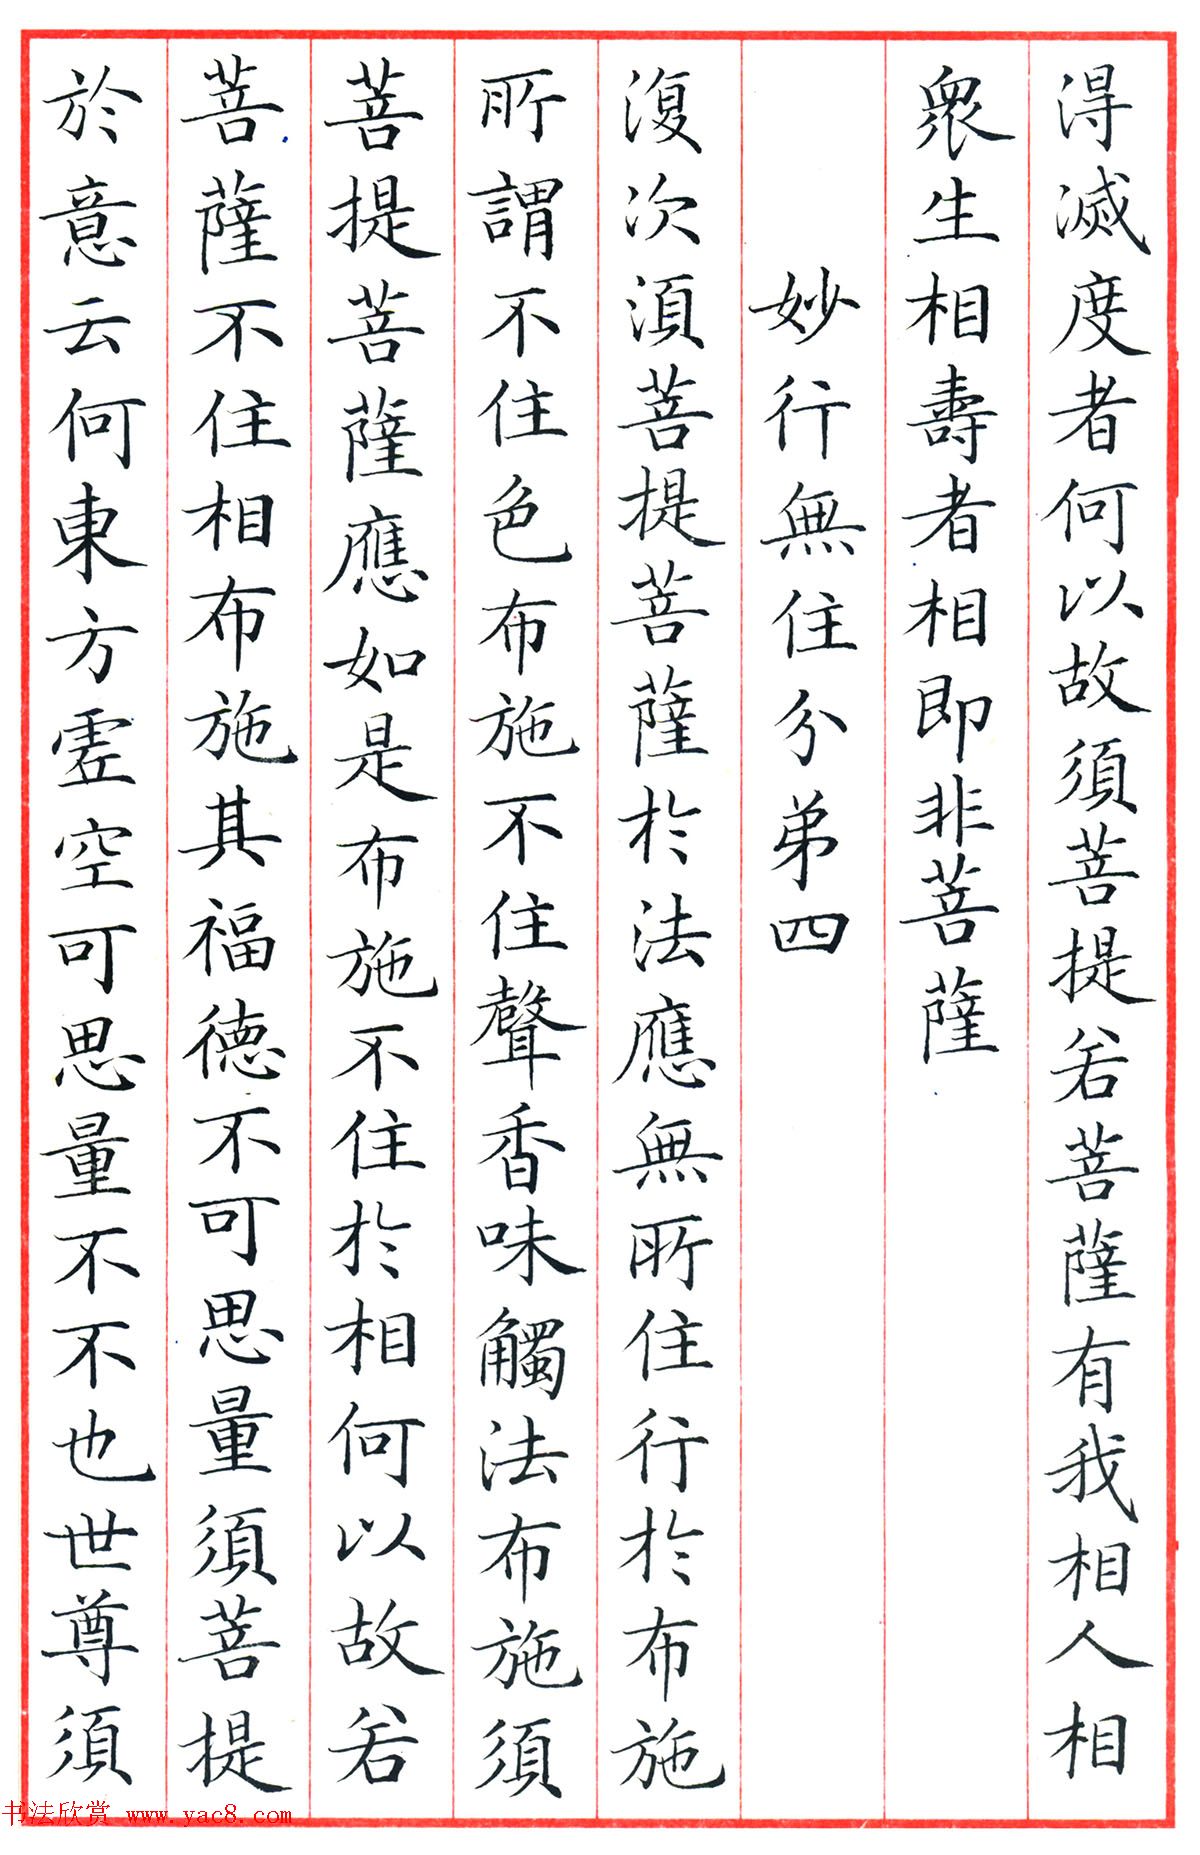 得滅度者何以故須菩提若菩薩有我相人相
眾生相壽者相即非菩薩
妙行無住分弟四
復次須菩提菩薩於法應無所住行於布施
所謂不住色布施不住聲香味觸法布施須
菩提菩薩應如是布施不住於相何以故若
菩薩不住相布施其福德不可思量須菩提
於意云何東方虛空可思量不不也世尊須
书法欣赏 www.yac8.com